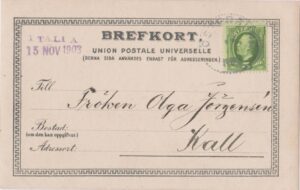 BREFKORT.
ITALIA
15 NOV 1903
UNION POSTALE UNIVERSELLE
(DENNA SIDA ANVÄNDES ENDAST FÖR ADRESSERINGEN)
Till
Fröken Olga Jörgensén
Bostad:
(om den kan uppgifvas)
Kall
Adressort: